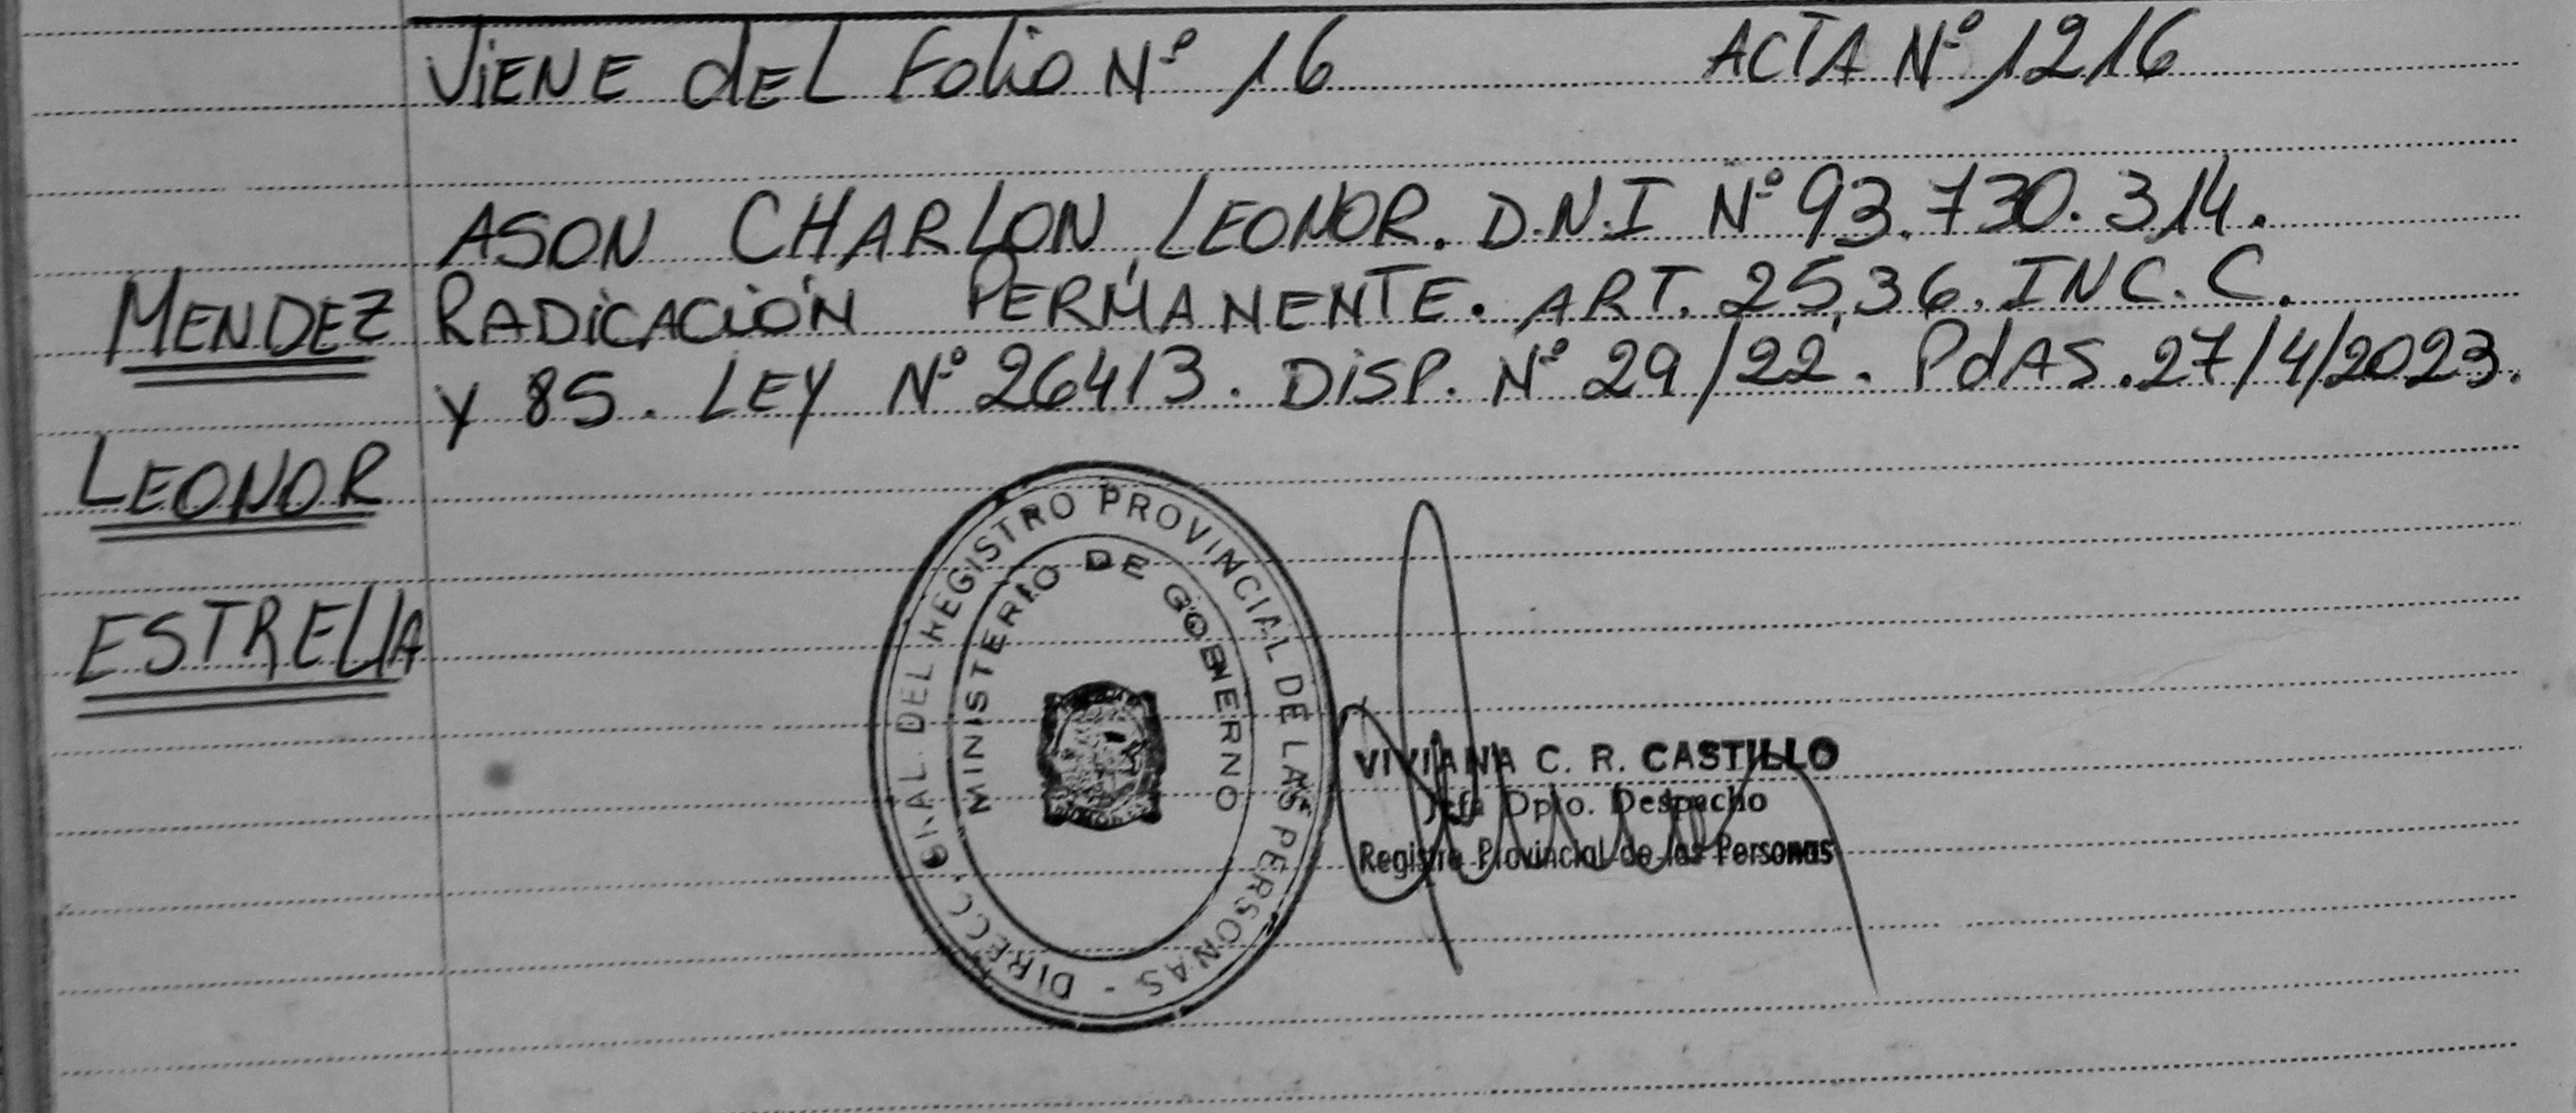 VIENE dEL Folio Nº 16 ACTA Nº 1216
ASON CHARLON, LEONOR. D.N.I Nº 93.730.314.
MENDEZ RADICACIÓN PERMANENTE. ART. 25,36, INC. C.
Y 85. LEY Nº 26413. DISP. Nº 29/22. PdAS. 27/4/2023.
LEONOR
ESTRELLA
DIRECC. GRAL. DEL REGISTRO PROVINCIAL DE LAS PERSONAS -
MINISTERIO DE GOBIERNO
VIVIANA C. R. CASTILLO
Jefa Dpto. Despacho
Registro Provincial de las Personas